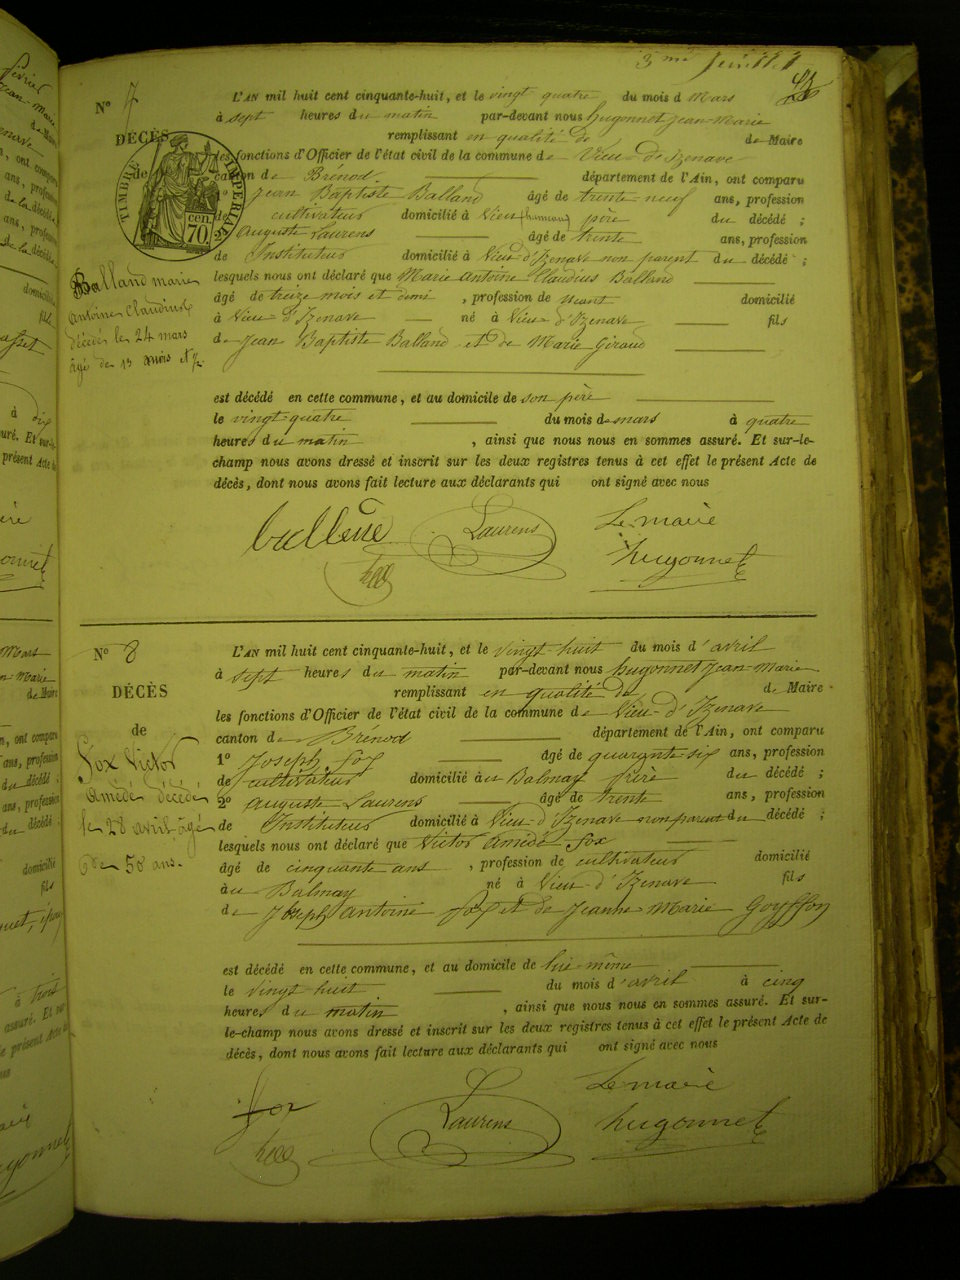 3me feuillet
Nº 7
L'AN mil huit cent cinquante-huit, et le vingt quatre du mois d Mars
à sept heures du matin par-devant nous hugonnet jean-Marie
remplissant en qualité de de Maire
DÉCÈS
les fonctions d'Officier de l'état civil de la commune de Vieu-d'Izenave
de
canton de Brénod. département de l'Ain, ont comparu
TIMBRE IMPÉRIAL
70 cen.
1º Jean Baptiste Balland âgé de trente-neuf ans, profession
de cultivateur domicilié à Vieu père du décédé ;
2º Auguste Laurens âgé de trente ans, profession
de Instituteur domicilié à Vieu d'Izenave non parent du décédé ;
Balland marie
antoine Claudius
décédé le 24 mars
âgé de 13 mois et ½
lesquels nous ont déclaré que Marie Antoine Claudius Balland
âgé de treize mois et demi , profession de néant domicilié
à Vieu-d'Izenave né à Vieu-d'Izenave fils
de Jean Baptiste Balland et de Marie Giraud
est décédé en cette commune, et au domicile de son père
le vingt-quatre du mois de mars à quatre
heures du matin , ainsi que nous nous en sommes assuré. Et sur-le-
champ nous avons dressé et inscrit sur les deux registres tenus à cet effet le présent Acte de
décès, dont nous avons fait lecture aux déclarants qui ont signé avec nous
Laurens
Le maire
hugonnet
Nº 8
L'AN mil huit cent cinquante-huit, et le vingt-huit du mois d'avril
à sept heures du matin par-devant nous hugonnet Jean-Marie
remplissant en qualité de de Maire
DÉCÈS
les fonctions d'Officier de l'état civil de la commune de Vieu-d'Izenave
de
canton de Brénod département de l'Ain, ont comparu
Fox Victor
Amédé décédé
le 28 avril âgé
de 50 ans.
1º Joseph Fox âgé de quarante-six ans, profession
de cultivateur domicilié au Balmay frère du décédé ;
2º Auguste Laurens âgé de trente ans, profession
de Instituteur domicilié à Vieu-d'Izenave non parent du décédé ;
lesquels nous ont déclaré que Victor Amédé Fox
âgé de cinquante ans , profession de cultivateur domicilié
au Balmay né à Vieu-d'Izenave fils
de Joseph Antoine Fox et de Jeanne Marie Goyffon
est décédé en cette commune, et au domicile de lui-même
le vingt huit du mois d'avril à cinq
heures du matin , ainsi que nous nous en sommes assuré. Et sur-
le-champ nous avons dressé et inscrit sur les deux registres tenus à cet effet le présent Acte de
décès, dont nous avons fait lecture aux déclarants qui ont signé avec nous
fox
Laurens
Le maire
hugonnet